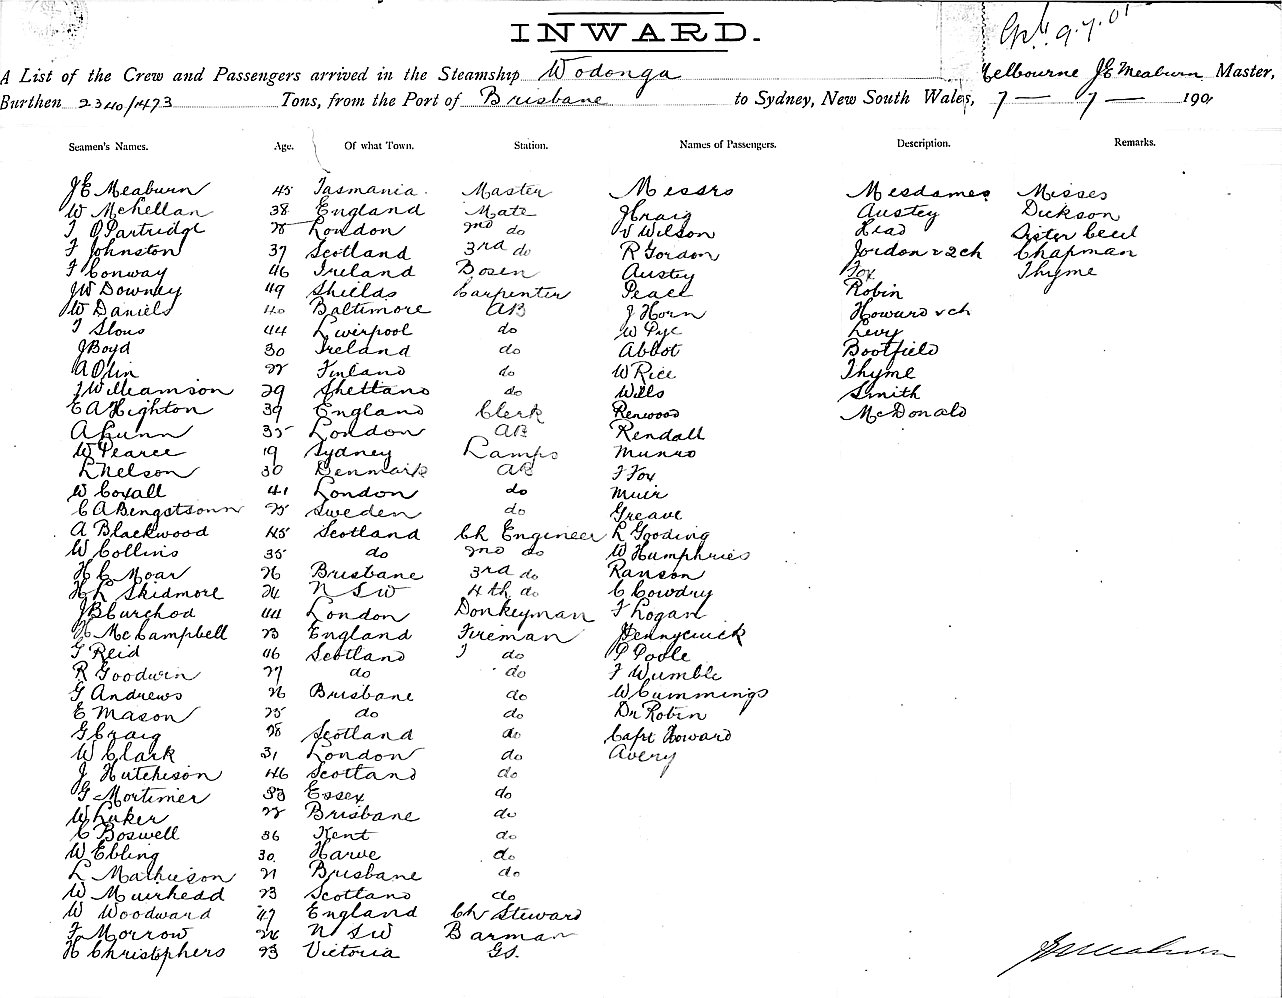 INWARD.
9.7.01
A List of the Crew and Passengers arrived in the Steamship Wodonga Melbourne J E Meaburn Master,
Burthen 2340/1473 Tons, from the Port of Brisbane to Sydney, New South Wales, 7 — 7 — 1901
Seamen's Names. Age. Of what Town. Station. Names of Passengers. Description. Remarks.
J E Meaburn 45 Tasmania Master Messrs Mesdames Misses
W McKellan 38 England Mate J Craig Austey Dickson
T O Partridge London 2nd do V Wilson Head Sister Cecil
F Johnston 37 Scotland 3rd do R Gordon Jordon & 2 ch Chapman
F Conway 46 Ireland Bosen Austey Fox Thyme
J W Downey 49 Shields Carpenter Peace Robin
W Daniels 40 Baltimore AB J Horn Howard & ch
T Slous 44 Liverpool do W Pye Levy
J Boyd 30 Ireland do Abbot Bootfield
A Olin 22 Finland do W Rice Thyme
J Williamson 29 Shetland do Wills Smith
E A Highton 39 England Clerk Renwood McDonald
A Gunn 35 London AB Rendall
W Pearce 19 Sydney Lamps Munro
L Nelson 30 Denmark AB F Fox
W Coxall 41 London do Muir
C A Bengstsonn 25 Sweden do Greave
A Blackwood 45 Scotland Ch Engineer R Gooding
W Collins 35 do 2nd do W Humphries
H C Moar 26 Brisbane 3rd do Ranson
H L Skidmore 24 N S W 4th do C Cowdry
J B Curchod 44 London Donkeyman F Logan
H McCampbell 23 England Fireman Pennycuick
G Reid 46 Scotland do P Poole
R Goodwin 27 do do F Wumble
G Andrews 26 Brisbane do W Cummings
E Mason 25 do do Dr Robin
G Craig 28 Scotland do Capt Howard
W Clark 31 London do Avery
J Hutchison 46 Scotland do
G Mortimer 33 Essex do
W Luker 22 Brisbane do
C Boswell 36 Kent do
W Ebling 30 Harve do
L Mathieson 21 Brisbane do
W Muirhead 23 Scotland do
W Woodward 47 England Ch Steward
F Morrow 24 N S W Barman
H Christophers 23 Victoria GS.
J E Meaburn